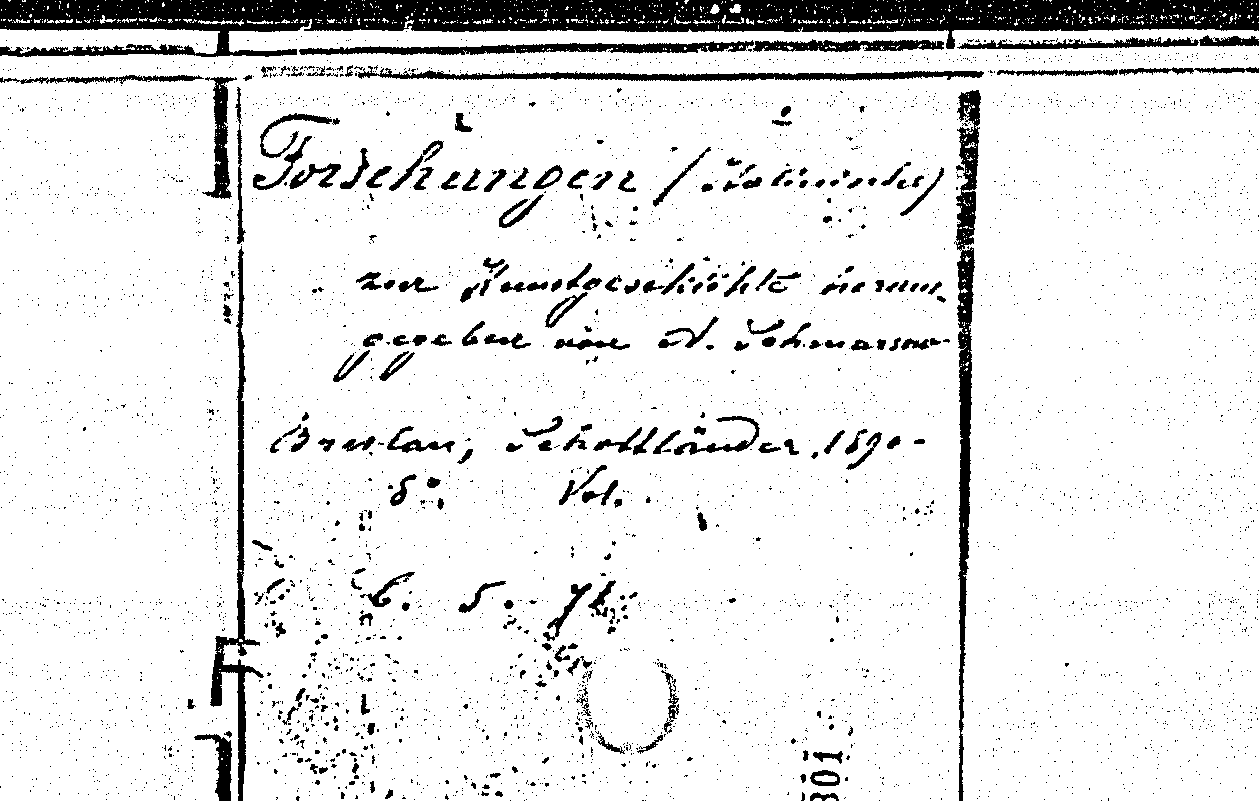 Forschungen (Italienische)
zur Kunstgeschichte heraus-
gegeben von A. Schmarsow
Breslau, Schottländer, 1890-
8°. Vol.
6. 5. 71
301